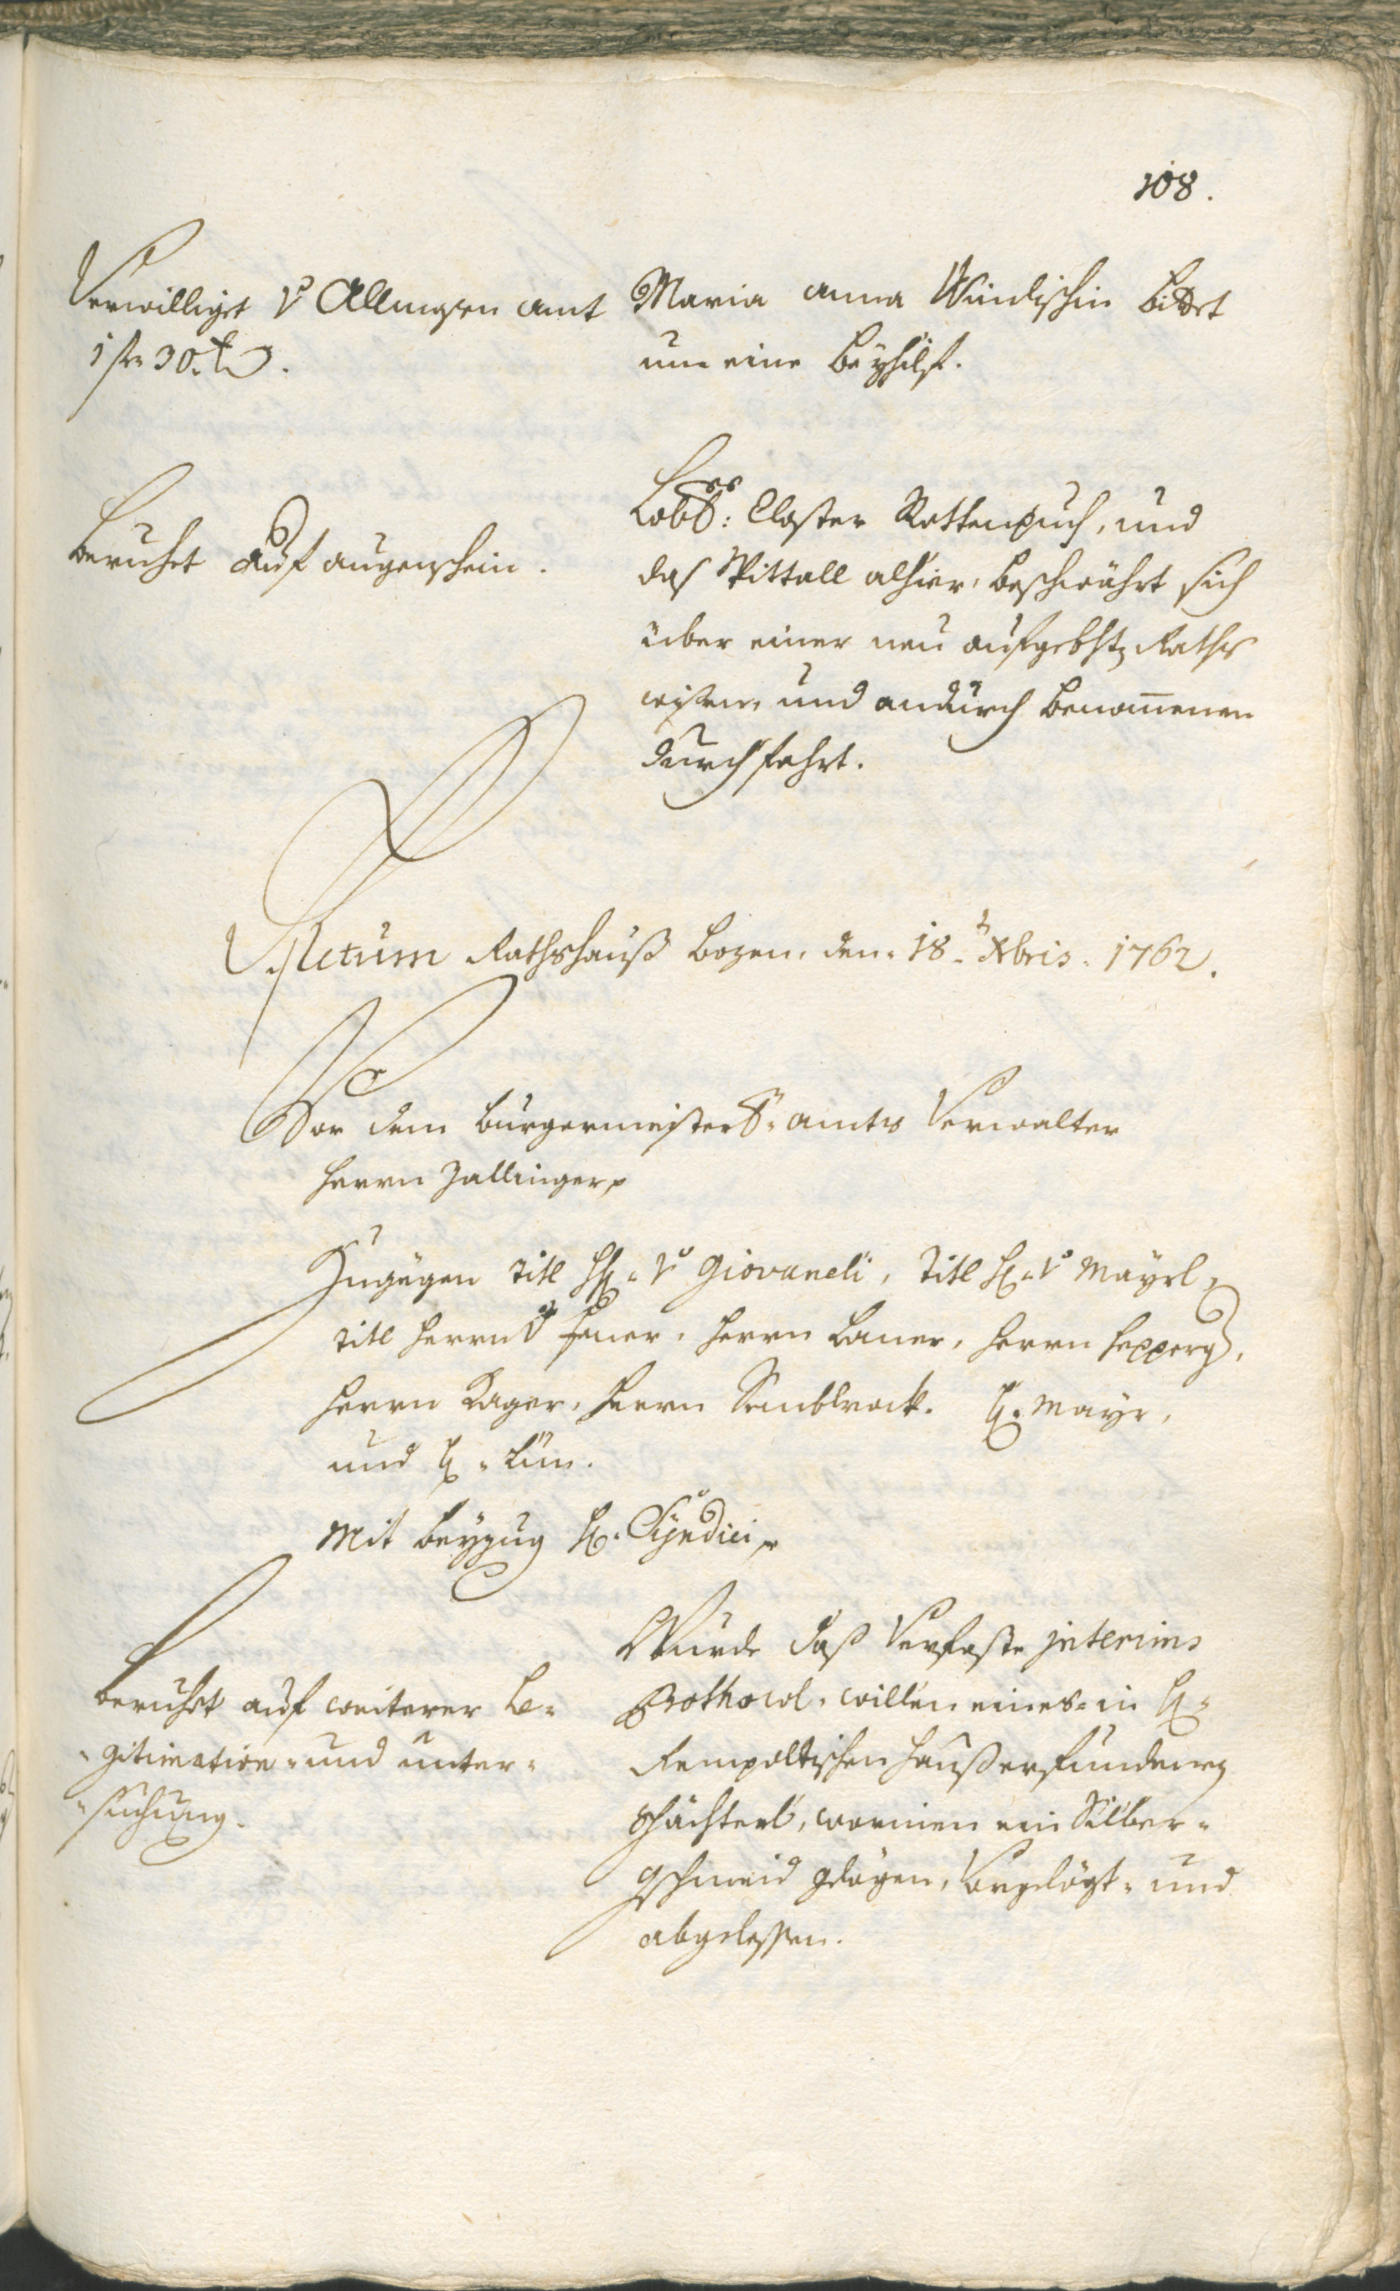 108.
Verwilliget v Allmosen amt
1 fl. 30 x.
Maria anna Windischin bittet
um eine beyhilf.
beruhet auf augenschein.
Löbl: Closter Rottenpuch, und
das Spittall alhier, beschwährt sich
über einer neu aufgebhtn Raths
wisen, und andurch benom̅enen
durchfahrt.
Actum Rathshauß bozen, den 18. Xbris. 1762.
Vor dem burgermeisters: amts Verwalter
herrn Zallinger
Zugegen Titl H: v Giovaneli, Titl H: v Mayrl,
Titl herrn v , herrn bauer, herrn hepperg,
herrn Lager, herrn Semblrock. H: Mayr,
und H: Lün.
Mit beyzug H: Syndici
beruhet auf weiterer Le=
=gitimation= und unter=
=suchung.
Wurde daß Verfaßte jnterims
Prothocol, willen eines in H:
Rempoltischen hauß erfundenen
schächterl, worinen ein Silber=
gschmeid glögen, Vorgelögt= und
abgelessen.